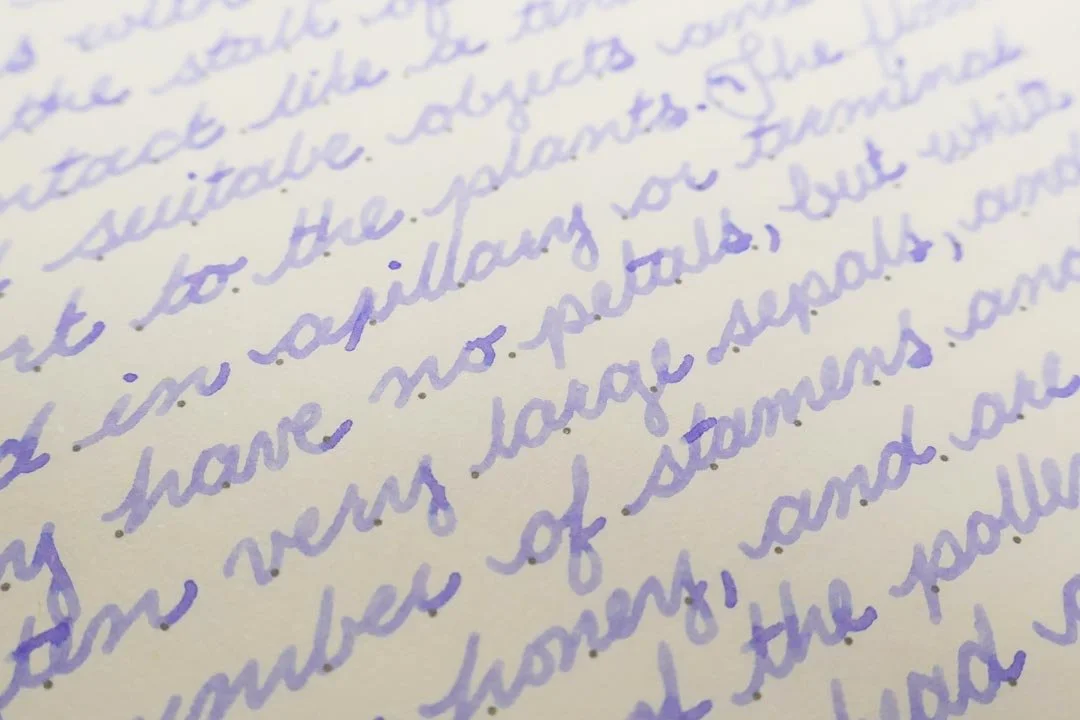 the stalk of
like a
suitabe objects and
to the plants. The
in apillary or terminal
have no petals, but while
very large sepals, and
number of stamens and
honey, and are
the pollen